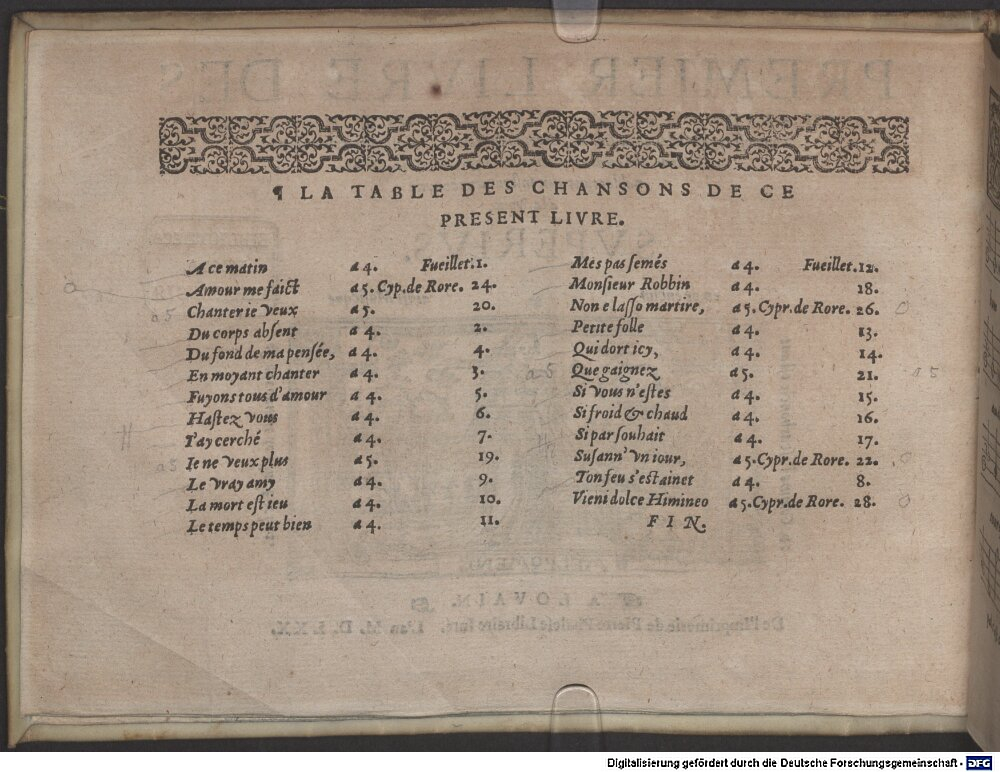 ¶ LA TABLE DES CHANSONS DE CE
PRESENT LIVRE.
A ce matin a 4. Fueillet. 1.
Amour me faict a 5. Cyp. de Rore. 24.
Chanter ie veux a 5. 20.
Du corps absent a 4. 2.
Du fond de ma pensée, a 4. 4.
En moyant chanter a 4. 3.
Fuyons tous d'amour a 4. 5.
Hastez vous a 4. 6.
I'ay cerché a 4. 7.
Ie ne veux plus a 5. 19.
Le vray amy a 4. 9.
La mort est ieu a 4. 10.
Le temps peut bien a 4. 11.
Mes pas semés a 4. Fueillet. 12.
Monsieur Robbin a 4. 18.
Non e lasso martire, a 5. Cypr. de Rore. 26.
Petite folle a 4. 13.
Qui dort icy, a 4. 14.
Que gaignez a 5. 21.
Si vous n'estes a 4. 15.
Si froid & chaud a 4. 16.
Si par souhait a 4. 17.
Susann' vn iour, a 5. Cypr. de Rore. 22.
Ton feu s'estainet a 4. 8.
Vieni dolce Himineo a 5. Cypr. de Rore. 28.
FIN.
Digitalisierung gefördert durch die Deutsche Forschungsgemeinschaft - DFG